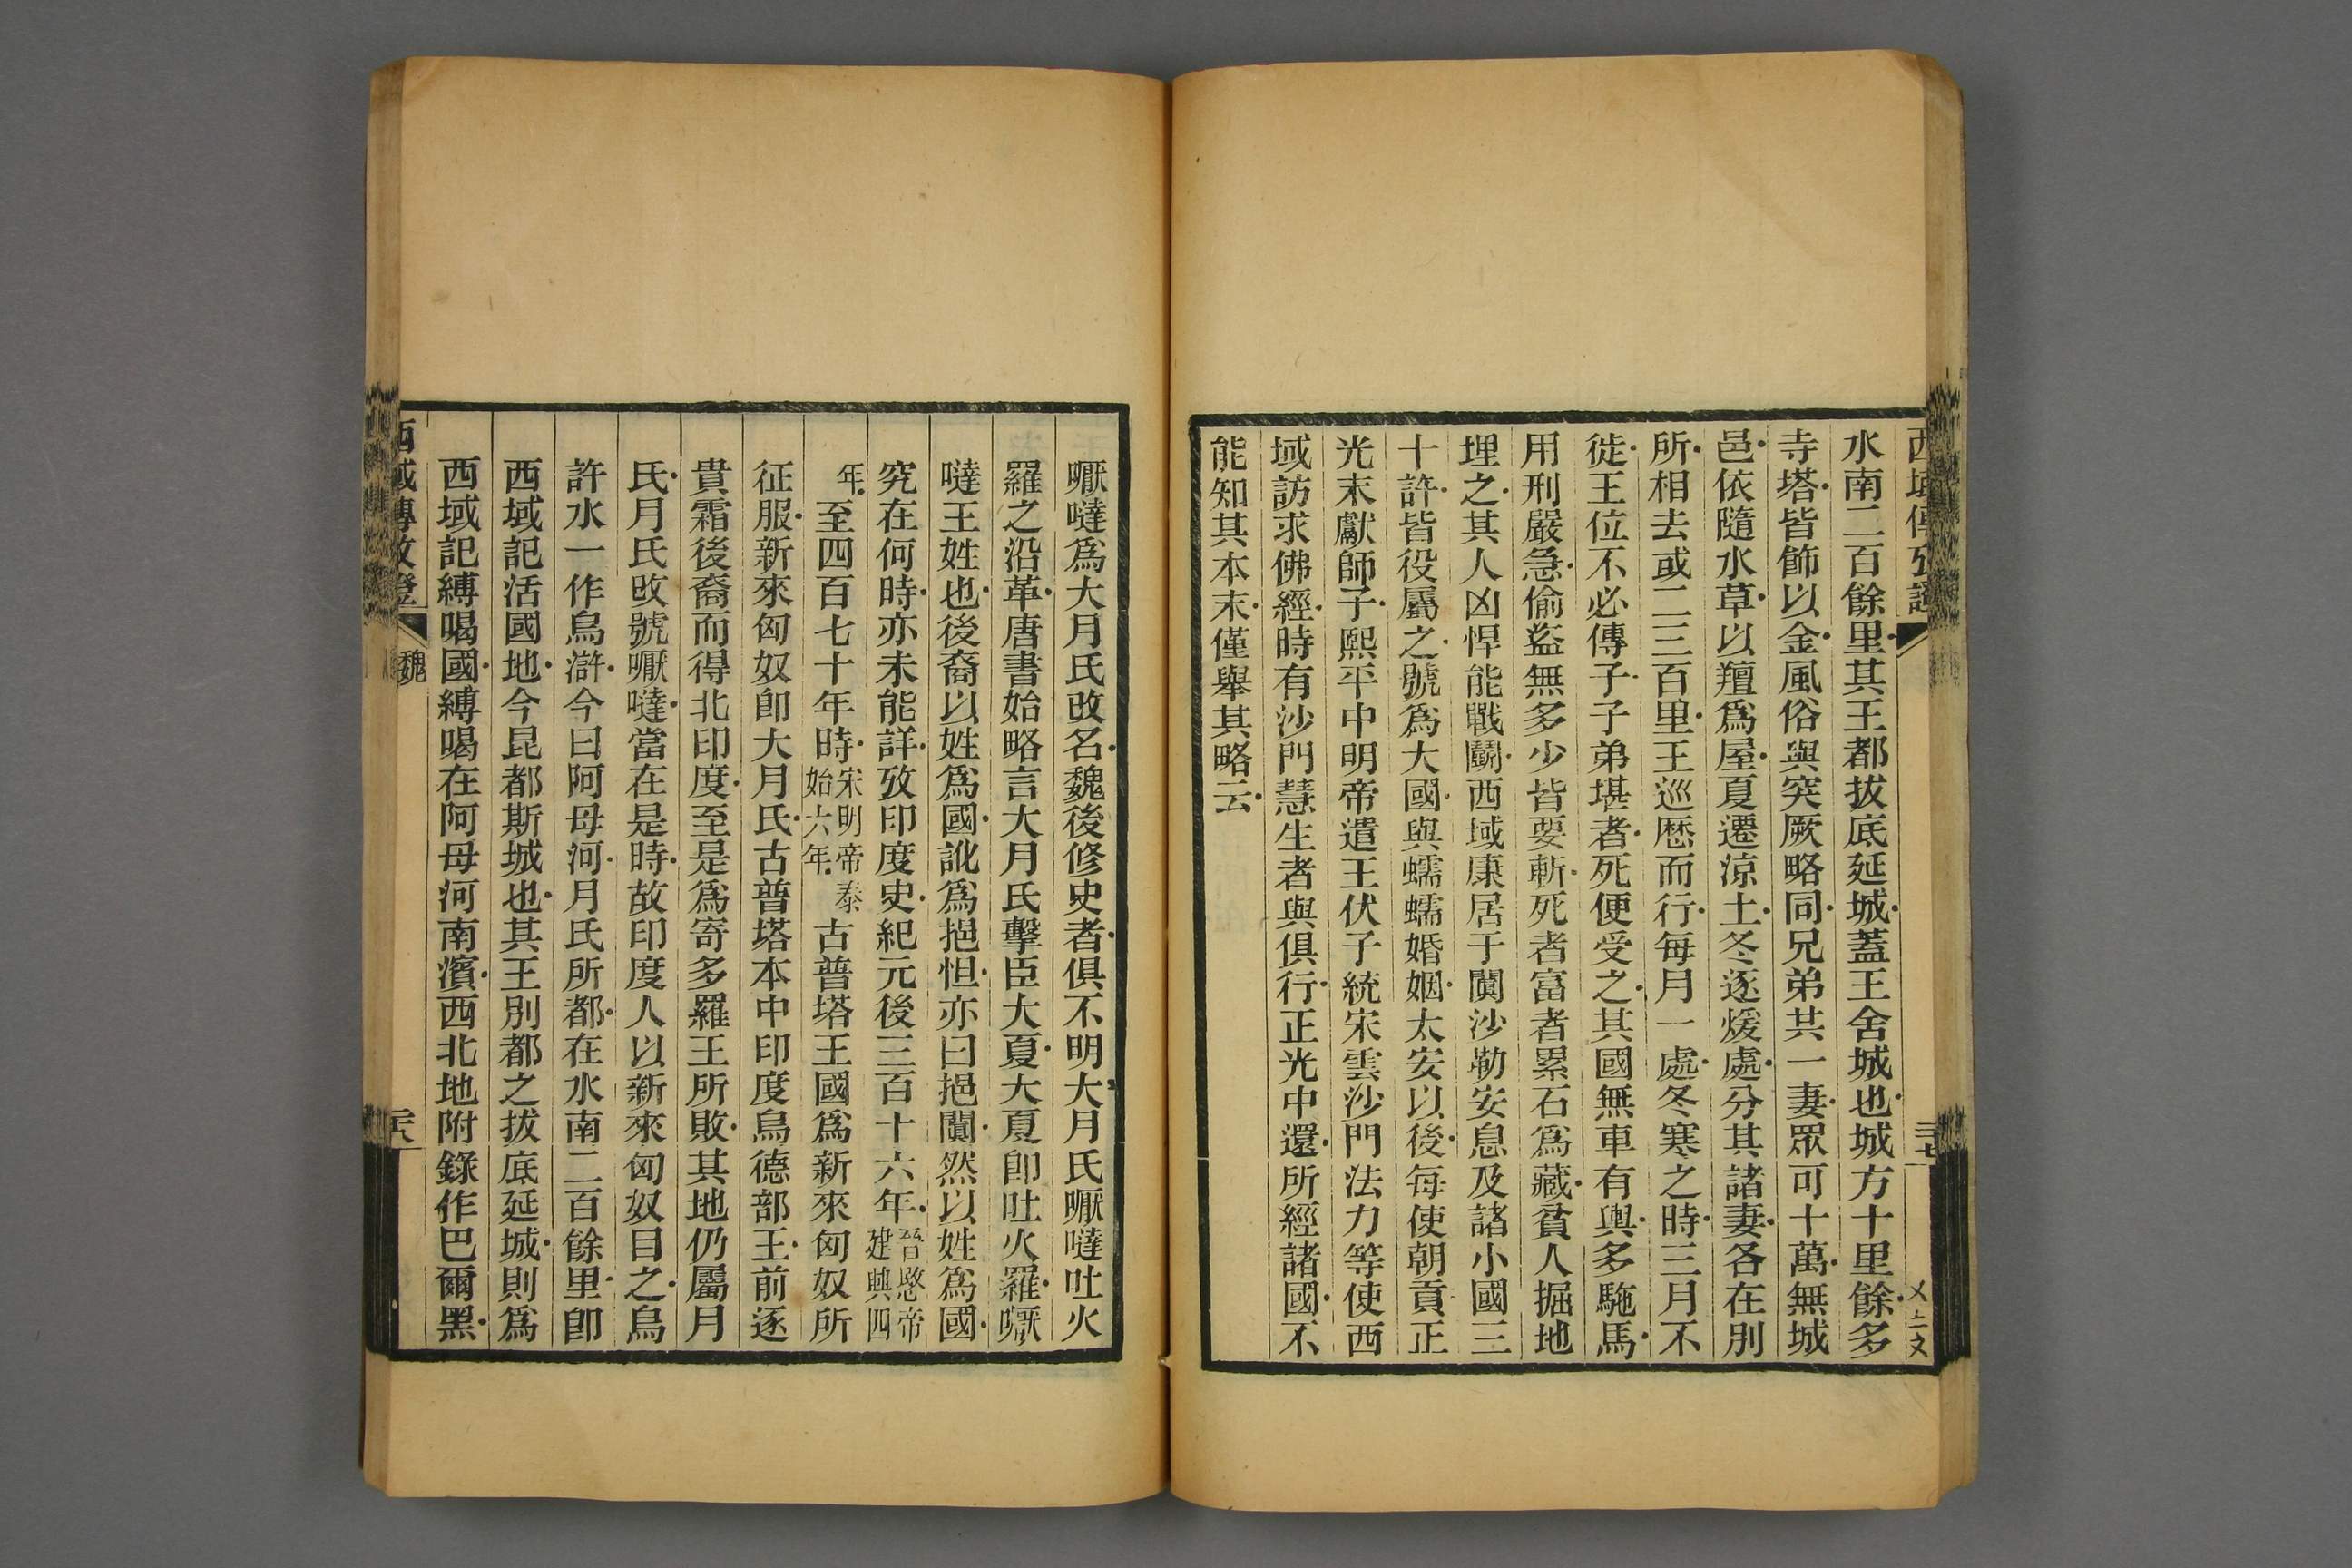 西域傳攷證
水南二百餘里其王都拔底延城蓋王舍城也城方十里餘多
寺塔皆飾以金風俗與突厥略同兄弟共一妻眾可十萬無城
邑依隨水草以羶爲屋夏遷涼土冬逐煖處分其諸妻各在別
所相去或二三百里王巡歷而行每月一處冬寒之時三月不
徙王位不必傳子子弟堪者死便受之其國無車有輿多駞馬
用刑嚴急偷盜無多少皆要斬死者富者累石爲藏貧人掘地
埋之其人凶悍能戰鬭西域康居于闐沙勒安息及諸小國三
十許皆役屬之號爲大國與蠕蠕婚姻太安以後每使朝貢正
光末獻師子熙平中明帝遣王伏子統宋雲沙門法力等使西
域訪求佛經時有沙門慧生者與俱行正光中還所經諸國不
能知其本末僅舉其略云
嚈噠爲大月氏攺名魏後修史者俱不明大月氏嚈噠吐火
羅之沿革唐書始略言大月氏擊臣大夏大夏卽吐火羅嚈
噠王姓也後裔以姓爲國訛爲挹怛亦曰挹闐然以姓爲國
究在何時亦未能詳攷印度史紀元後三百十六年晉愍帝建興四
年至四百七十年時宋明帝泰始六年古普塔王國爲新來匈奴所
征服新來匈奴卽大月氏古普塔本中印度烏德部王前逐
貴霜後裔而得北印度至是爲寄多羅王所敗其地仍屬月
氏月氏攺號嚈噠當在是時故印度人以新來匈奴目之烏
許水一作烏滸今曰阿母河月氏所都在水南二百餘里卽
西域記活國地今昆都斯城也其王別都之拔底延城則爲
西域記縛喝國縛喝在阿母河南濱西北地附錄作巴爾黑
西域傳攷證 魏